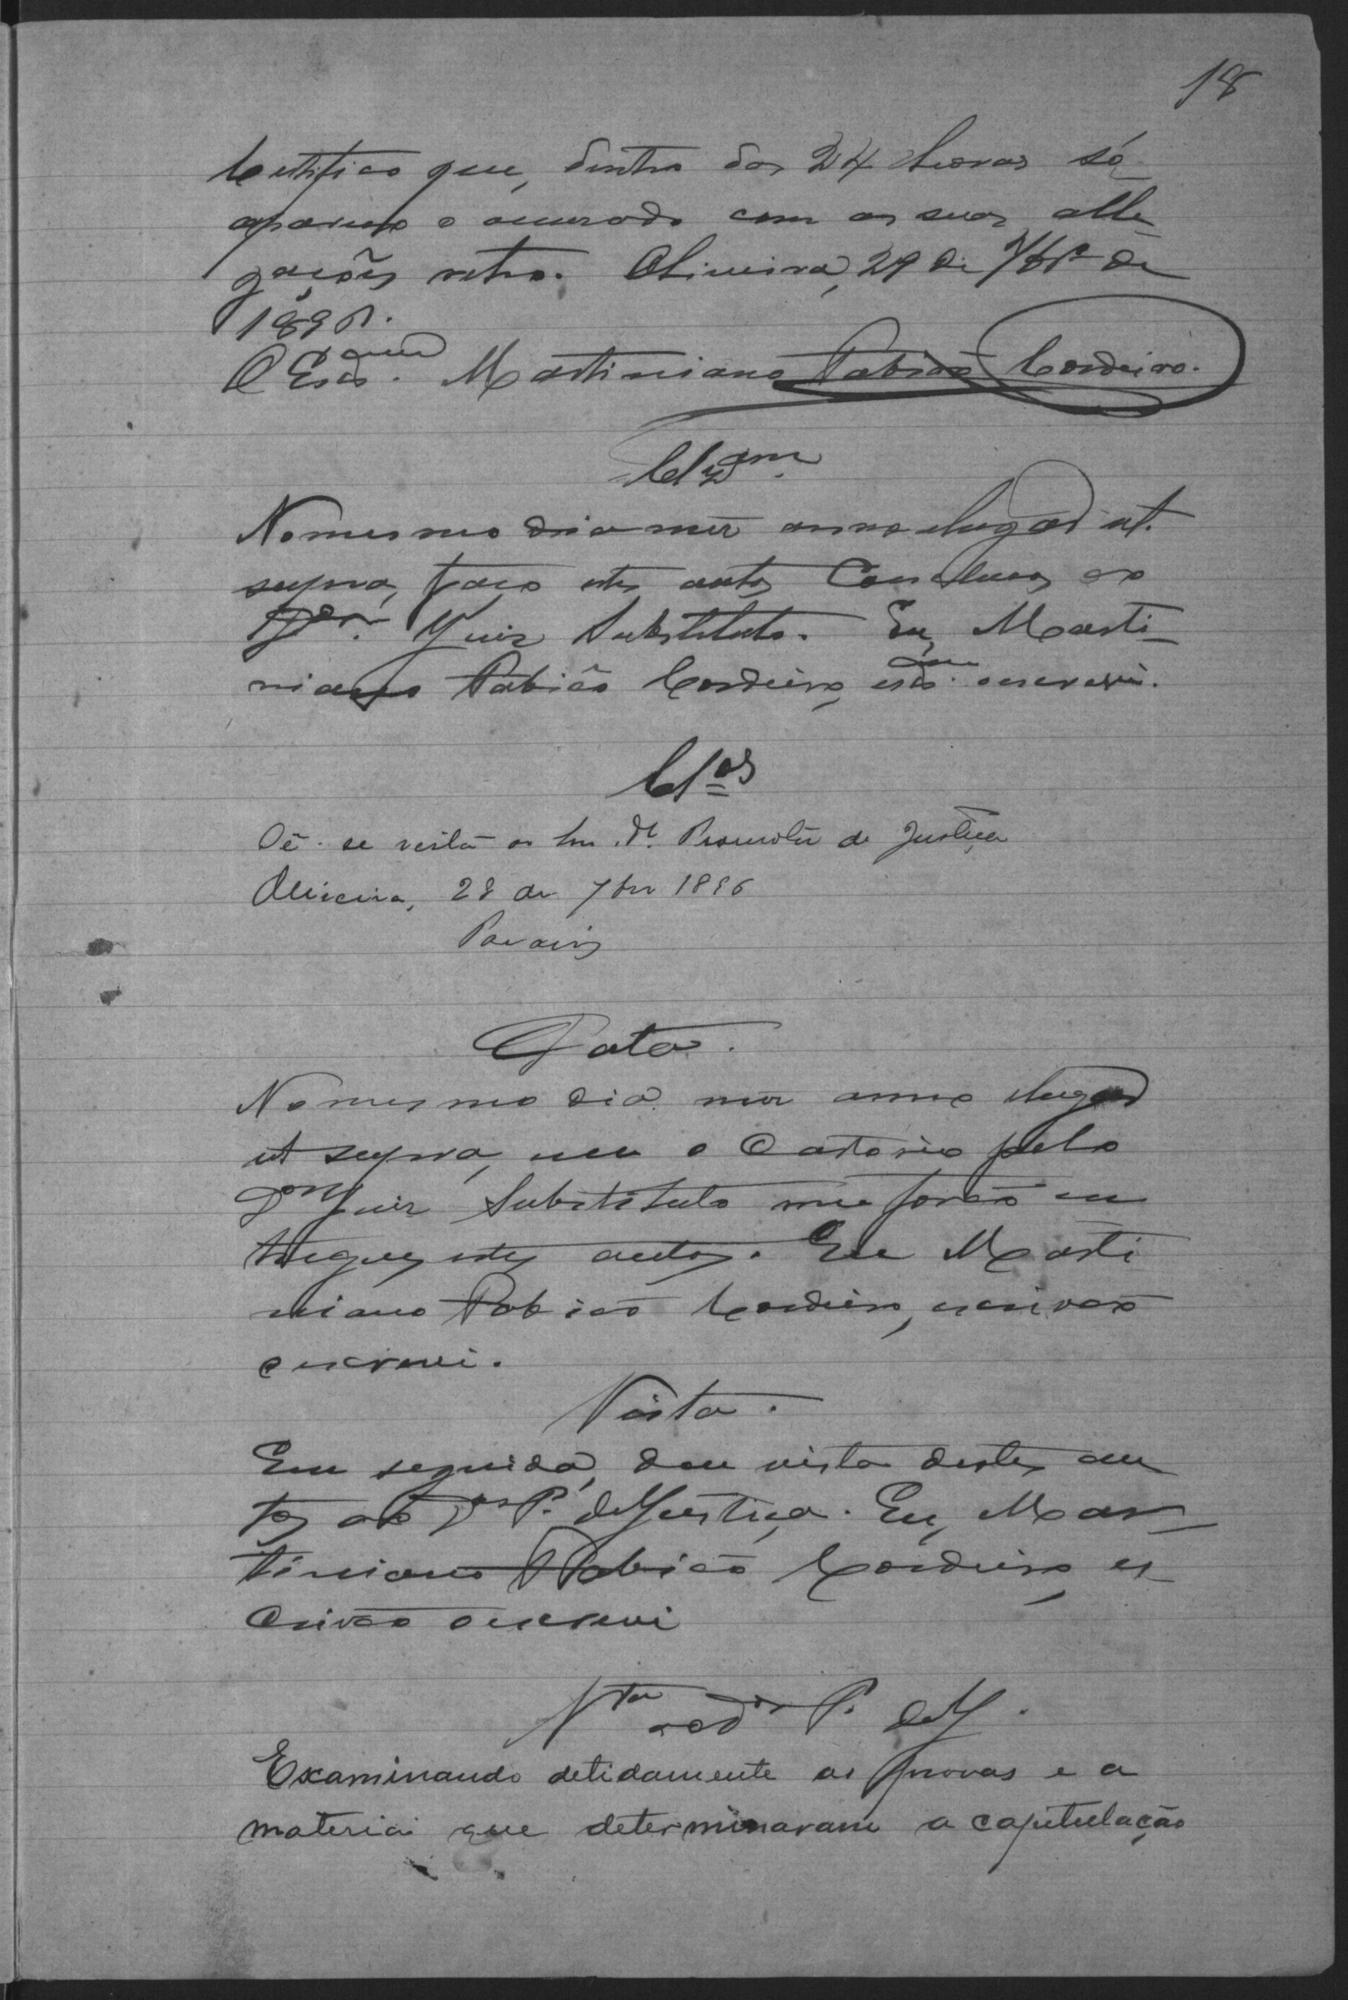 18
Certifico que, dentro das 24 horas só
aparece o accusado com as suas alle
gações retro. Oliveira, 29 de 7brº de
1896.
O Escrivam. Martiniano Fabião Cordeiro.
Clzam.
No mesmo dia mez anno e lugar ut.
supra, faço estes autos Conclusos ao
Dor. Juiz Substituto. Eu, Marti-
niano Fabião Cordeiro, escam. o escrevi.
Clos
Dê-se vista ao Snr. Dr. Promotor de Justiça
Oliveira, 28 de 7bro 1896
Data.
No mesmo dia mez anno e lugar
ut supra, em o Cartorio pelo
Dor Juiz Substituto me forão en
tregues estes autos. Eu Marti
niano Fabião Cordeiro, escrivão
o escrevi.
Vista.
Em seguida, dou vista destes au
tos ao Dor P. de Justiça. Eu, Mar-
tiniano Fabião Cordeiro, es
crivão o escrevi
Vta ao Dor P. de J.
Examinando detidamente as provas e a
materia que determinaram a capitulação